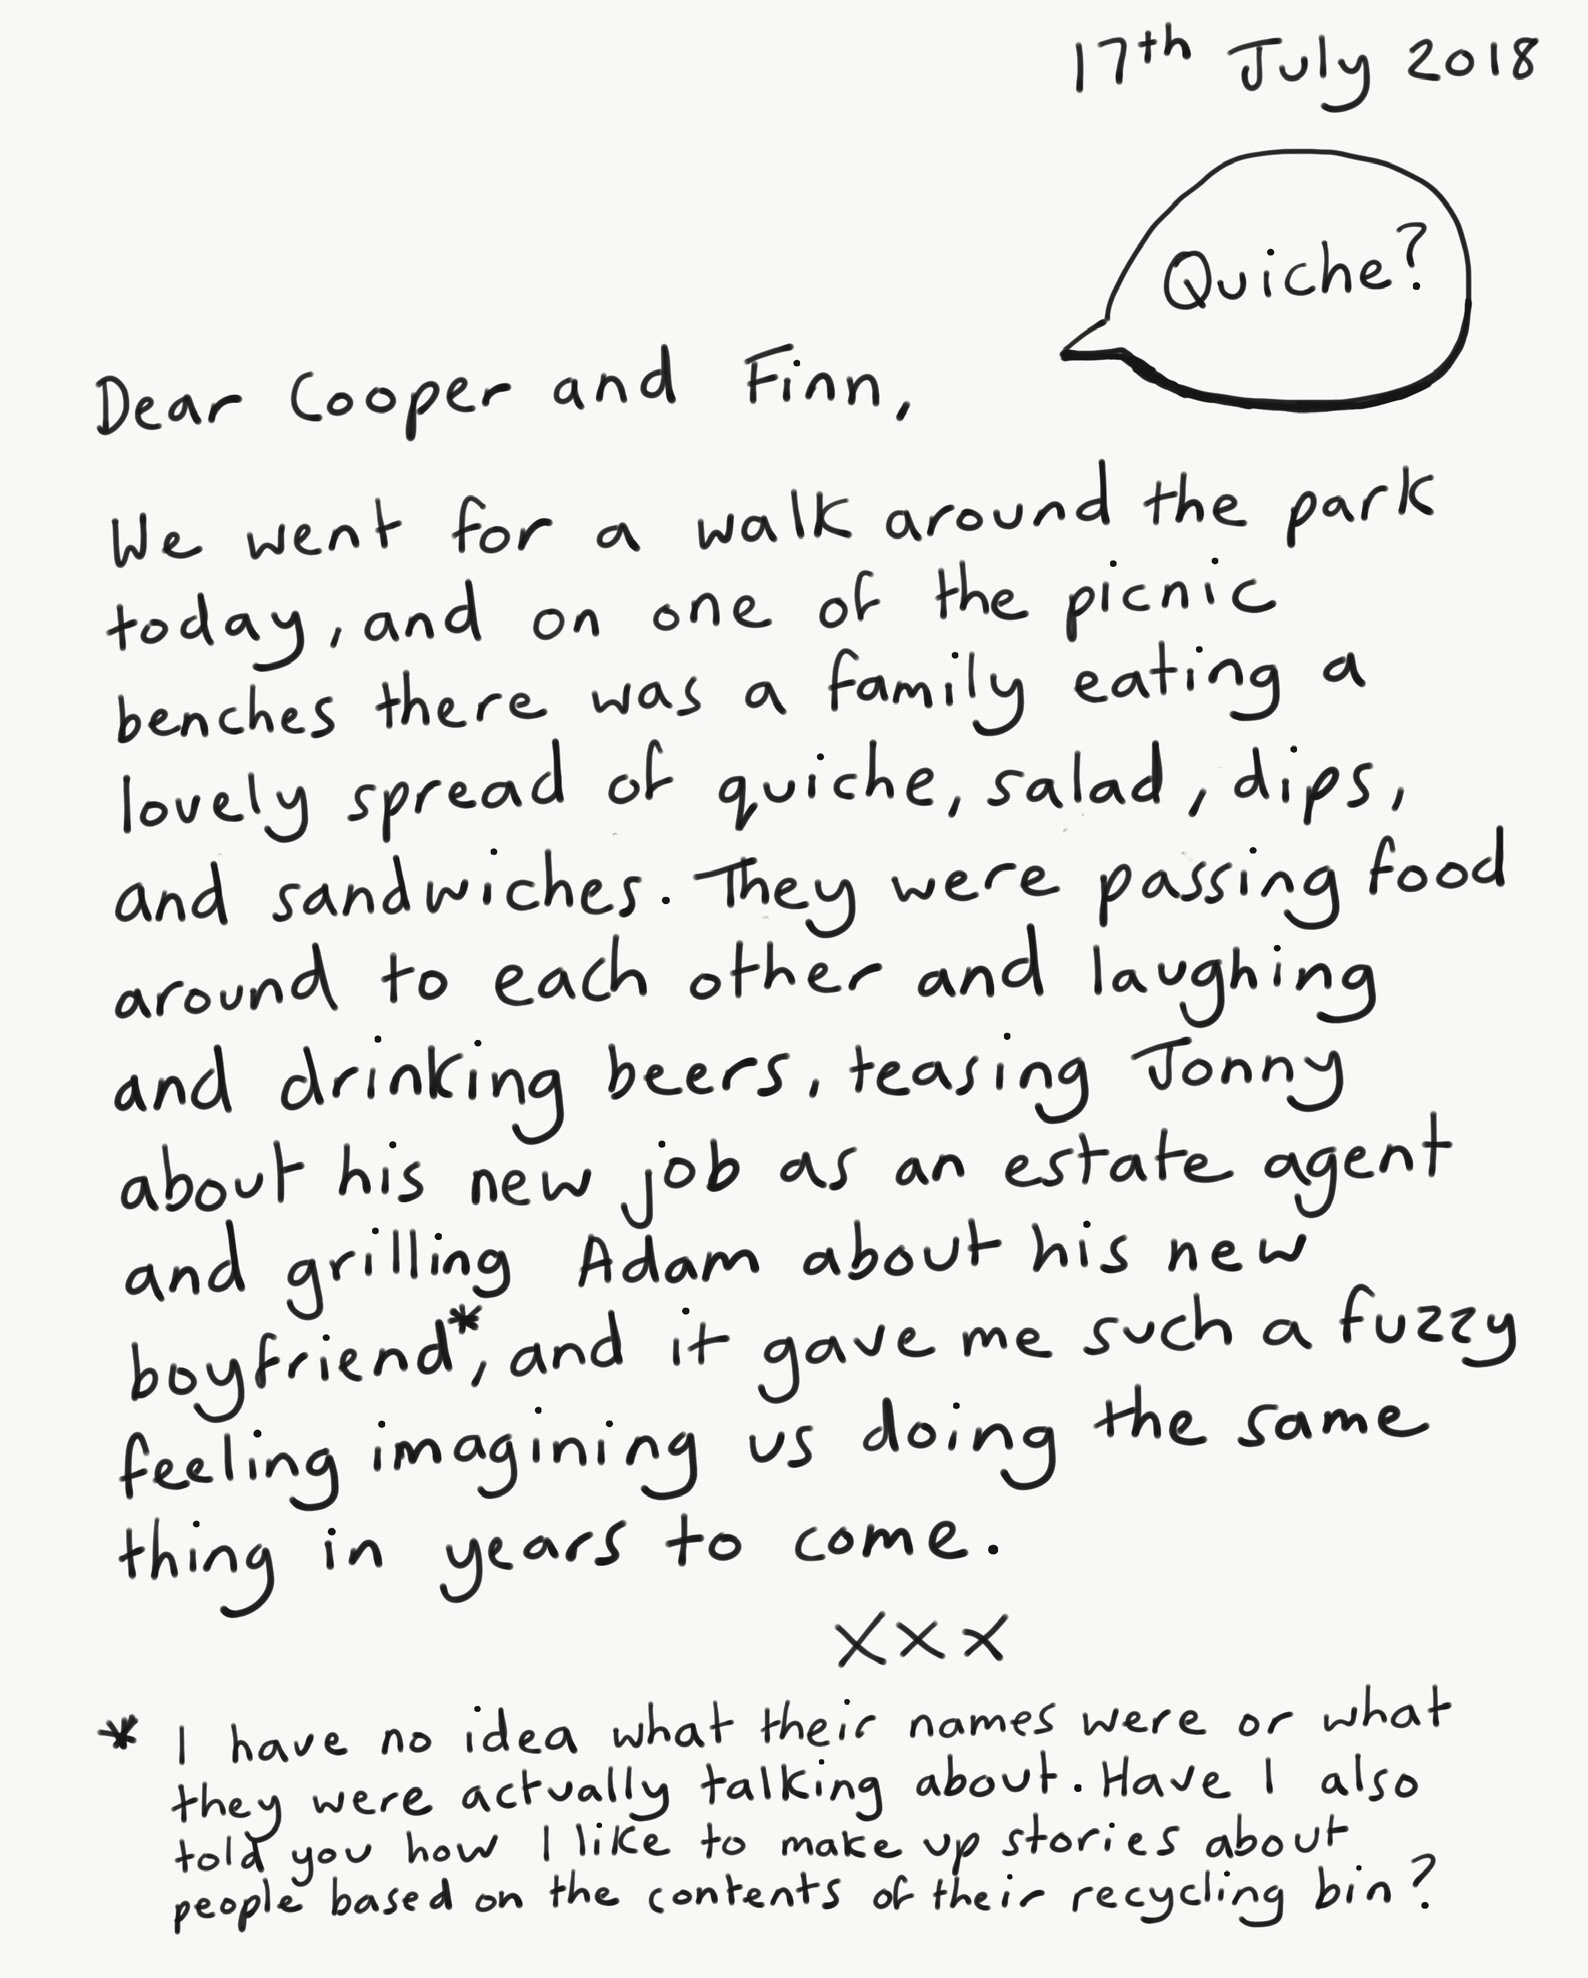 17th July 2018
Quiche?
Dear Cooper and Finn,
We went for a walk around the park
today, and on one of the picnic
benches there was a family eating a
lovely spread of quiche, salad, dips,
and sandwiches. They were passing food
around to each other and laughing
and drinking beers, teasing Jonny
about his new job as an estate agent
and grilling Adam about his new
boyfriend*, and it gave me such a fuzzy
feeling imagining us doing the same
thing in years to come.
xxx
* I have no idea what their names were or what
they were actually talking about. Have I also
told you how I like to make up stories about
people based on the contents of their recycling bin?